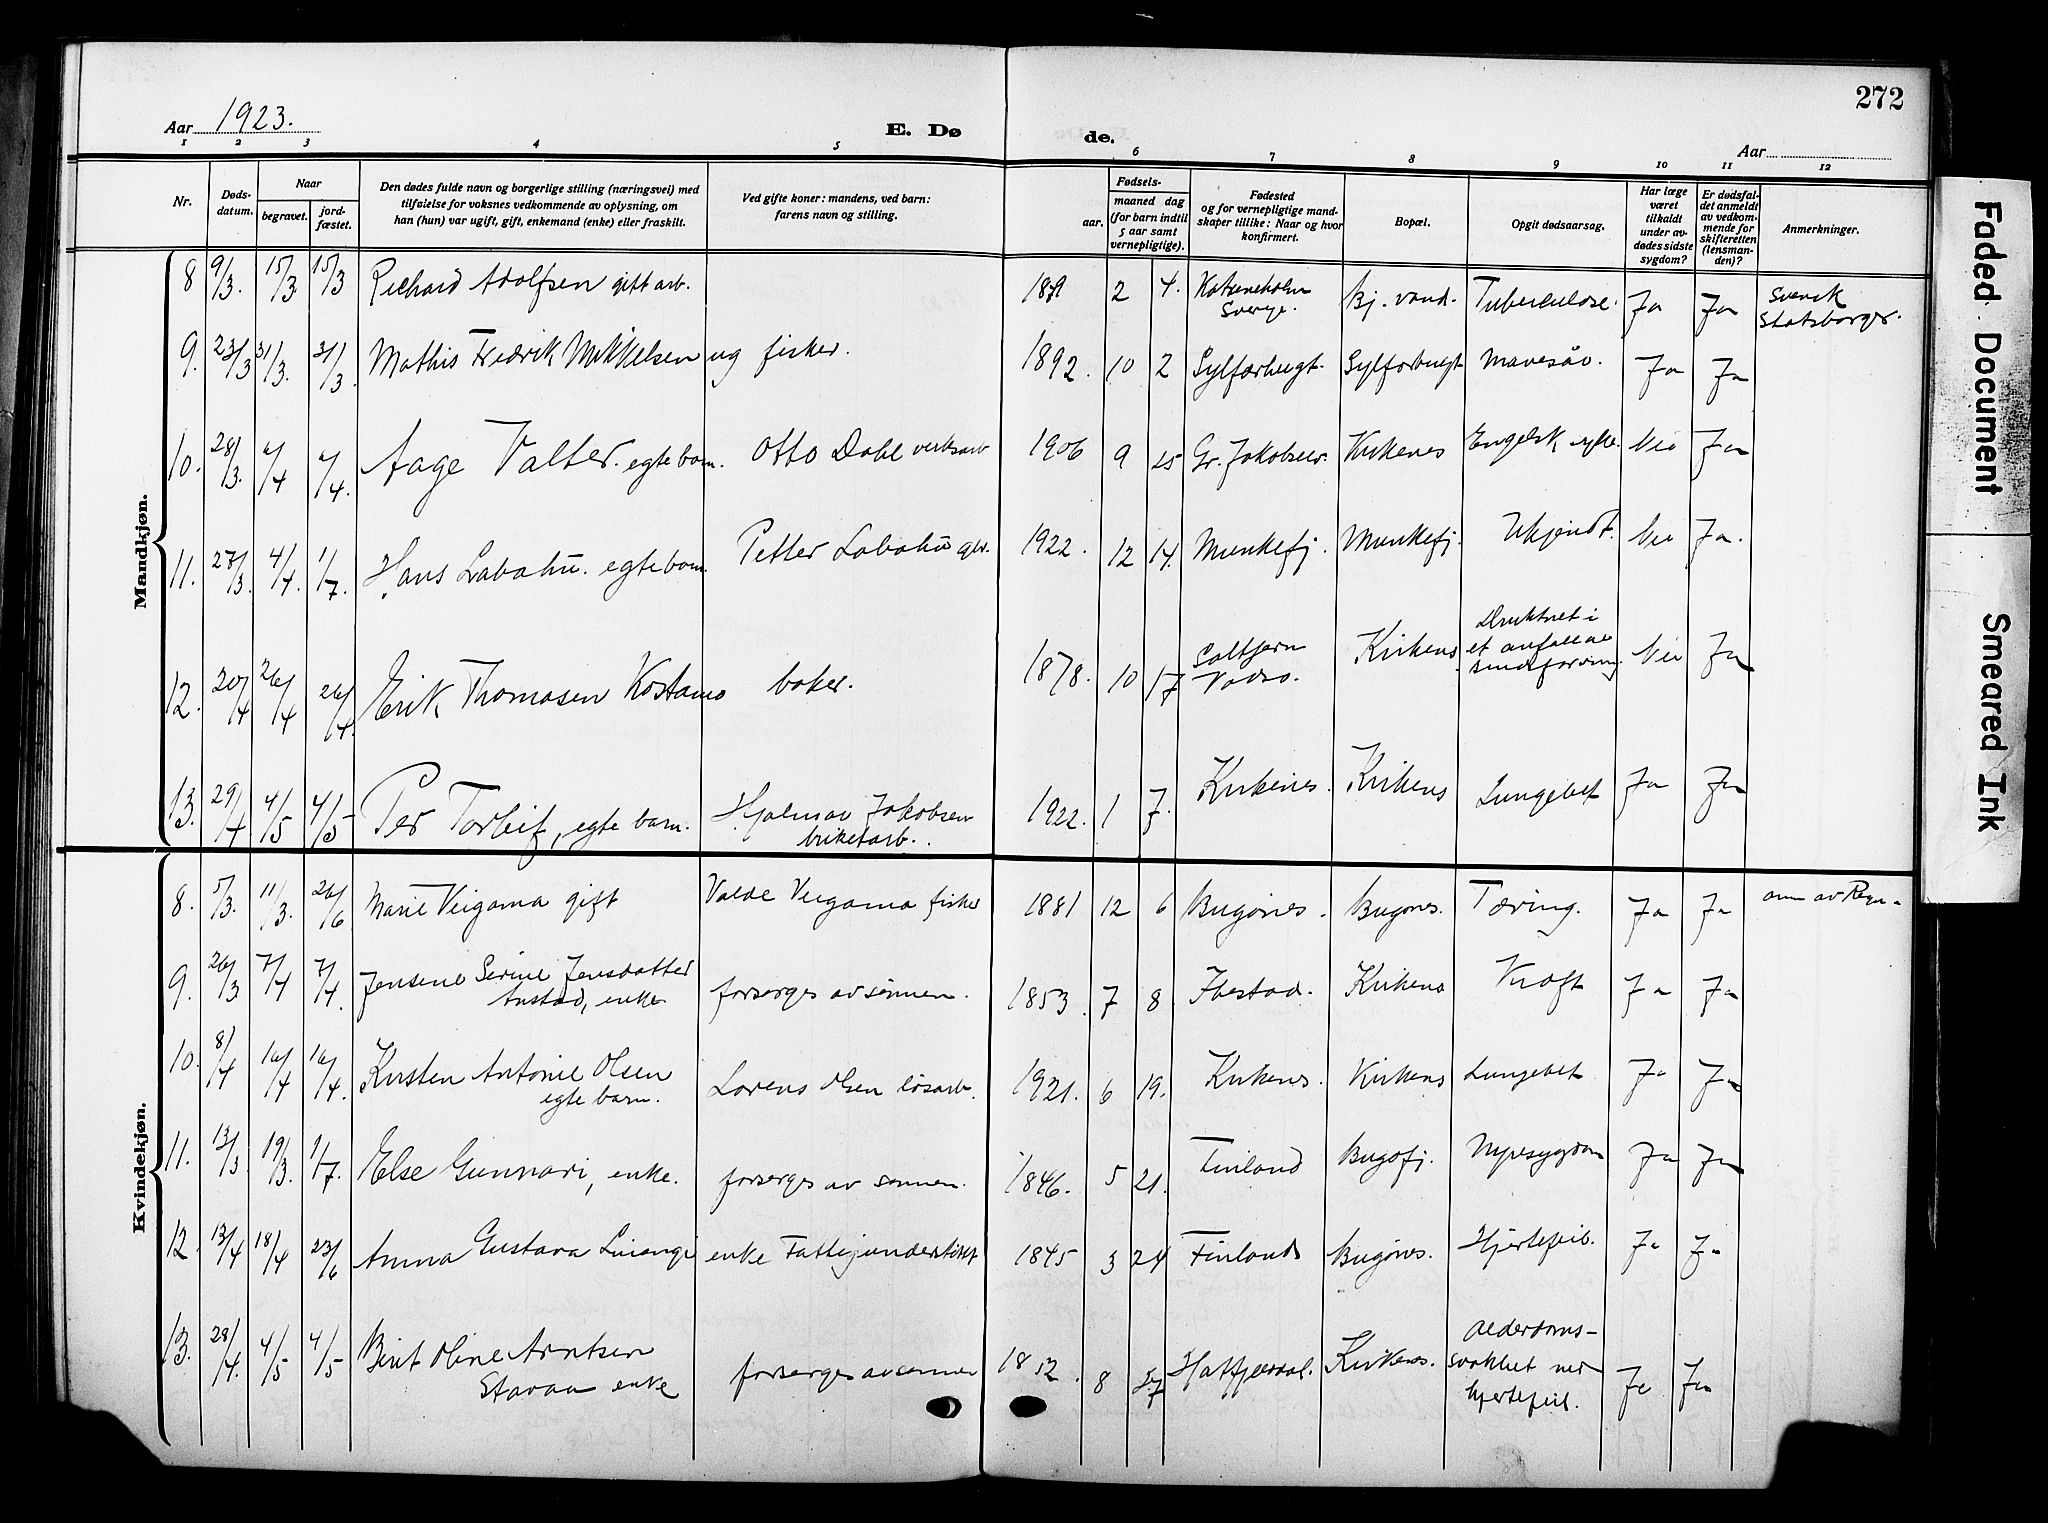 272
Aar 1923.
E. Dø de.
Aar
1 2 3 4 5 6 7 8 9 10 11 12
Nr.
Døds-
datum.
Naar
begravet.
jord-
fæstet.
Den dødes fulde navn og borgerlige stilling (næringsvei) med
tilføielse for voksnes vedkommende av oplysning, om
han (hun) var ugift, gift, enkemand (enke) eller fraskilt.
Ved gifte koner: mandens, ved barn:
farens navn og stilling.
Fødsels-
aar.
maaned dag
(for barn indtil
5 aar samt
vernepligtige).
Fødested
og for vernepligtige mand-
skaper tillike: Naar og hvor
konfirmert.
Bopæl.
Opgit dødsaarsag.
Har læge
været
tilkaldt
under av-
dødes sidste
sygdom?
Er dødsfal-
det anmeldt
av vedkom-
mende for
skifteretten
(lensman-
den)?
Anmerkninger.
Mandkjøn.
8 9/3. 15/3. 15/3 Richard Adolfsen gift arb. 2 4. Sverige. Bj. vand. Tuberculose. Ja Ja Svensk
Statsborger.
9. 23/3 31/3. 31/3. Mathis Fredrik Mikkelsen ug fisker. 1892. 10 2 Sylforbugt. Sylforbugt Mavesår. Ja Ja
10. 28/3. Aage Valter. egte barn. Otto Dahl verksarb 1906 9 25 Gr. Jakobselv. Kirkenes Engelsk syke. Nei Ja
11. 27/3. 4/4. 1/7. Hans Labahu. egte barn. Petter Labahu gbr. 1922. 12 14. Munkefj. Munkefj. Ukjendt. Nei Ja.
12. 20/4 26/4 26/4. Erik Thomasen Kostamo baker. 1878. 10 17 Vadsø. Kirkenes Druknet i
et anfall av
sindsforvirring Nei Ja
13. 29/4 4/5 4/5 Per Torleif, egte barn. Hjalmar Jakobsen
briketarb. 1922. 1 7. Kirkenes. Kirkenes Lungebet Ja Ja
Kvindekjøn.
8. 5/3. 11/3. 26/6 Marie Veigama gift Valde Veigama fisker 1881 12 6 Bugönes. Bugönes. Tæring. Ja Ja
9. 26/3 7/4 7/4. Jensene Serine Jensdatter
Anstad, enke forsørges av sønnen. 1853. 7 8 Ibestad. Kirkenes Kræft Ja Ja
10. 8/4 16/4 16/4. Kirsten Antonie Olsen
egte barn. Lorens Olsen løsarb. 1921. 6 19. Kirkenes. Kirkenes Lungebet Ja Ja
11. 13/3 19/3. 1/7. Else Gunnari, enke. forsørges av sønnen. 1846. 5 21. Finland Bugøfj. Nyresygdom Ja Ja
12 13/4 18/4 23/6 Anna Gustava Liianqi enke Fattigunderstøttet 1845 3 24 Finland Bugönes. Hjertefeil. Ja Ja
13. 28/4. 4/5 4/5 Berit Oline Arntsen
Stavan enke forsørges av sønnen 1852. 8 27 Hatfjeldal. Kirkenes. Alderdoms-
svakhet med
hjertefeil. Ja Ja
Faded Document
Smeared Ink